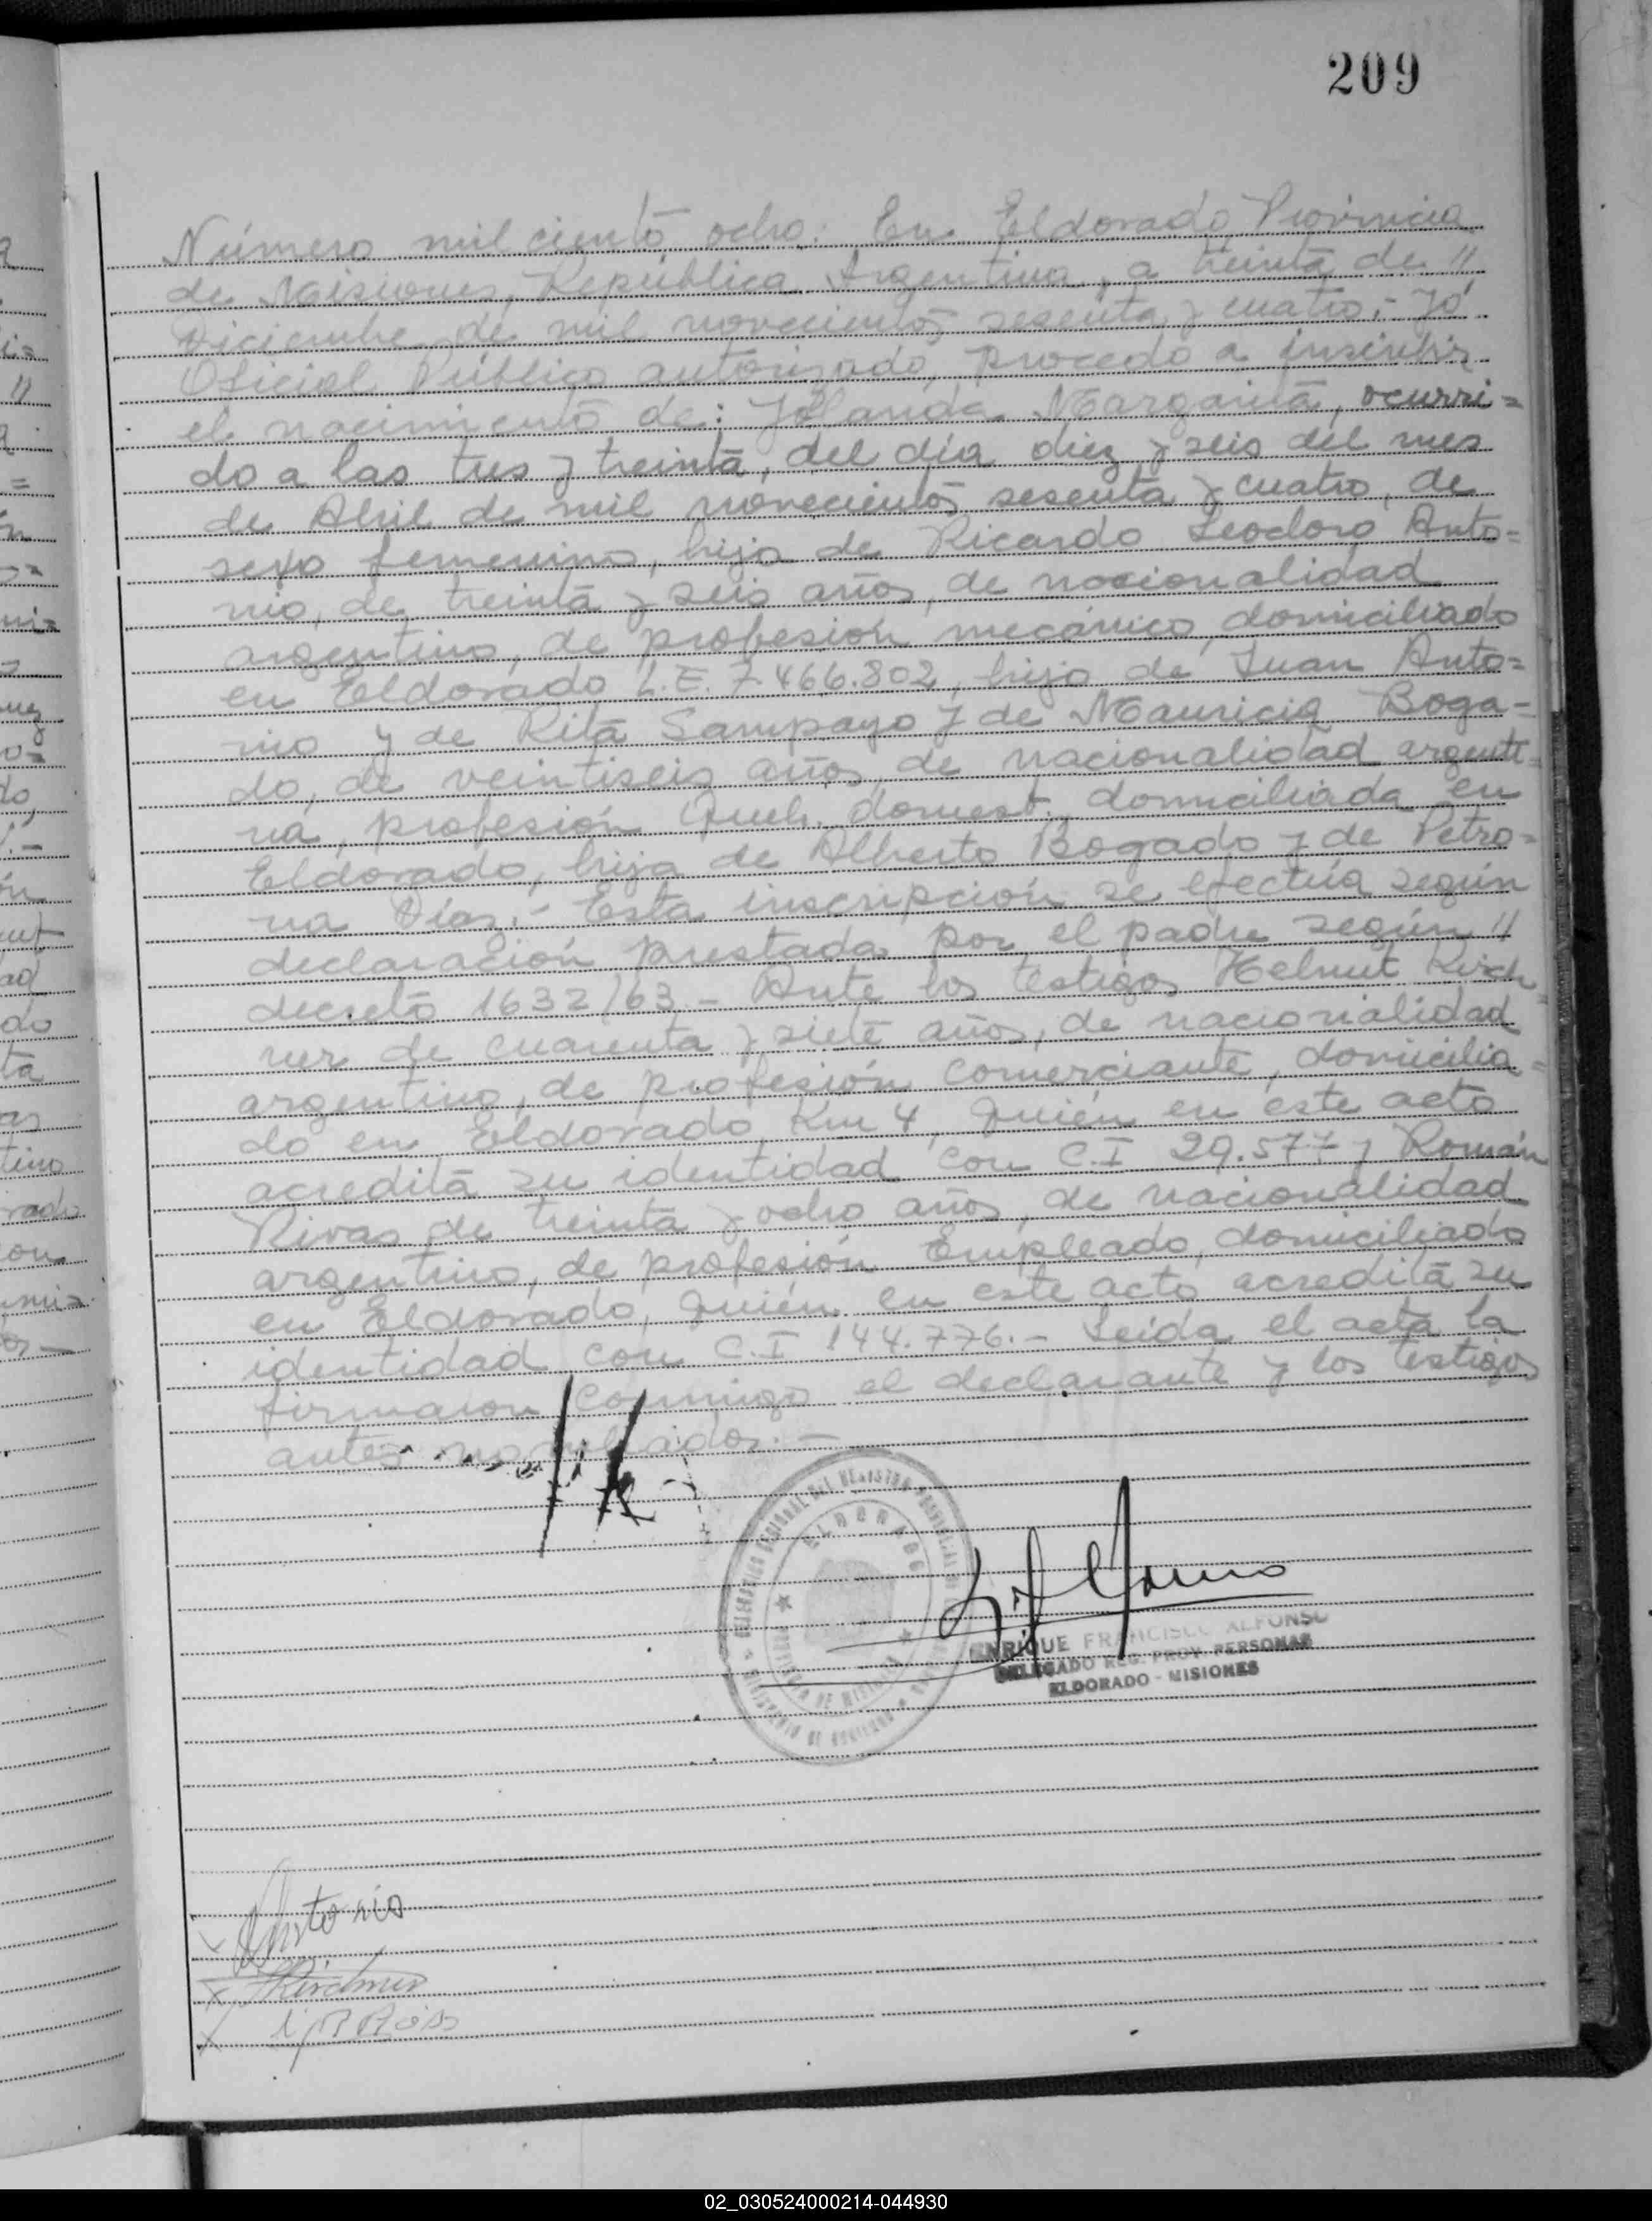 209
Número mil ciento ocho: En Eldorado Provincia
de Misiones, República Argentina, a treinta de //
Diciembre de mil novecientos sesenta y cuatro.- Yó
Oficial Público autorizado, procedo a inscribir
el nacimiento de: Yolanda Margarita, ocurri=
do a las tres y treinta, del día diez y seis del mes
de Abril de mil novecientos sesenta y cuatro, de
sexo femenino, hija de Ricardo Leodoro Anto=
nio, de treinta y seis años, de nacionalidad
argentino, de profesión mecánico, domiciliado
en Eldorado L.E. 7.466.802, hijo de Juan Anto=
nio y de Rita Sampayo y de Mauricia Boga=
do, de veintiseis años, de nacionalidad argenti=
na, profesión Queh. domest. domiciliada en
Eldorado, hija de Alberto Bogado y de Petro=
na Días.- Esta inscripción se efectúa según
declaración prestada por el padre según //
decreto 1632/63.- Ante los testigos Helmut Kirch=
ner de cuarenta y siete años, de nacionalidad
argentino, de profesión comerciante, domicilia=
do en Eldorado, Km 4, quién en este acto
acredita su identidad con C.I 29.577 y Román
Rivas de treinta y ocho años, de nacionalidad
argentino, de profesión Empleado, domiciliado
en Eldorado, quién en este acto acredita su
identidad con C.I 144.776.- Leída el acta la
firmaron conmigo el declarante y los testigos
antes
ELDORADO
ENRIQUE FRANCISCO ALFONSO
DELEGADO REG. PROV. PERSONAS
ELDORADO - MISIONES
Antonio
Kirchner
02_030524000214-044930